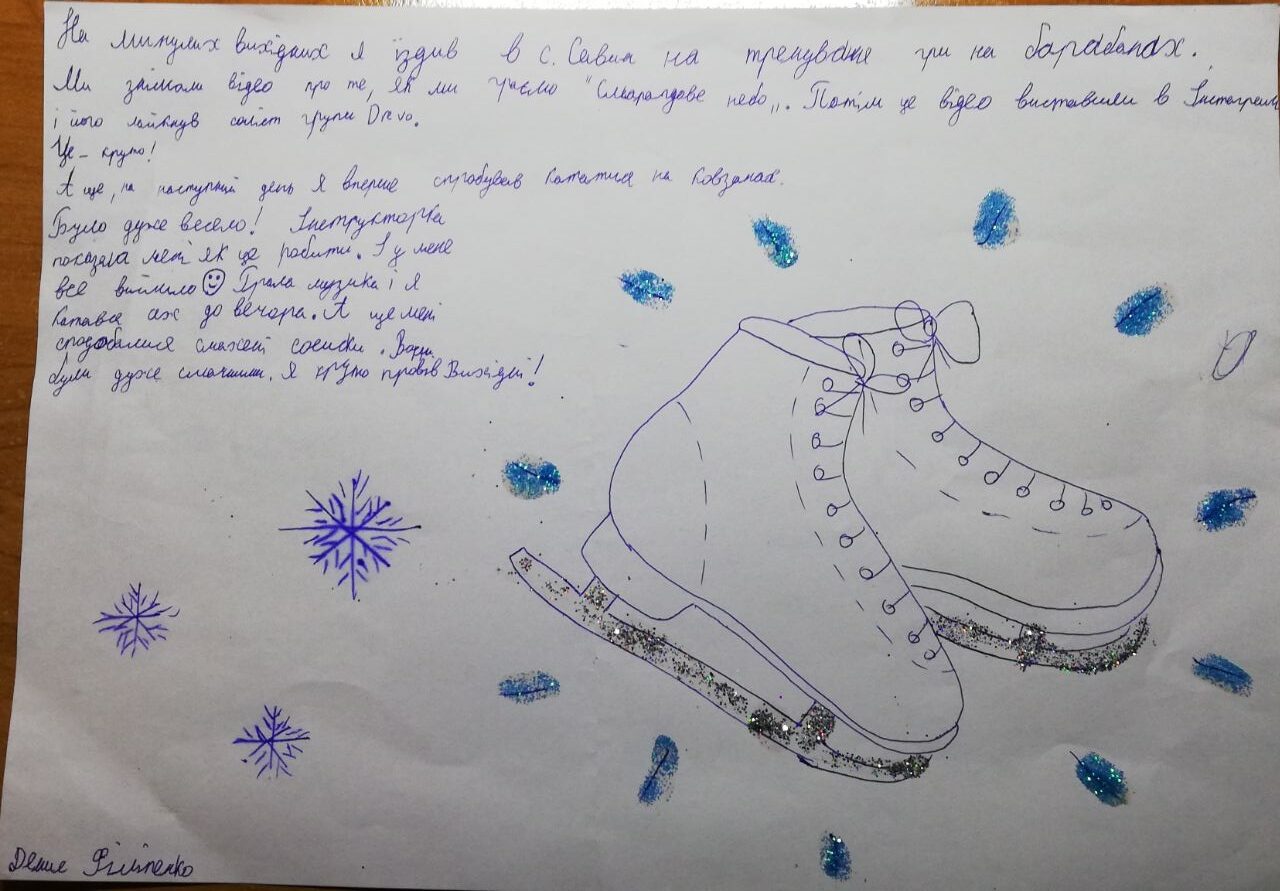 На минулих вихідних я їздив в с. Савин на тренуваня гри на барабанах.
Ми знімали відео про те, як ми граємо "Смарагдове небо„. Потім це відео виставили в Інстаграм
і його лайкнув соліст групи Drevo.
Це - круто!
А ще, на наступний день я вперше спробував кататися на ковзанах.
Було дуже весело! Інструкторка
показала мені як це робити. І у мене
все вийшло Грала музика і я
катався аж до вечора. А ще мені
сподобалися смажені сосиски. Вони
були дуже смачними. Я круто провів Вихідні!
Денис Філіпенко